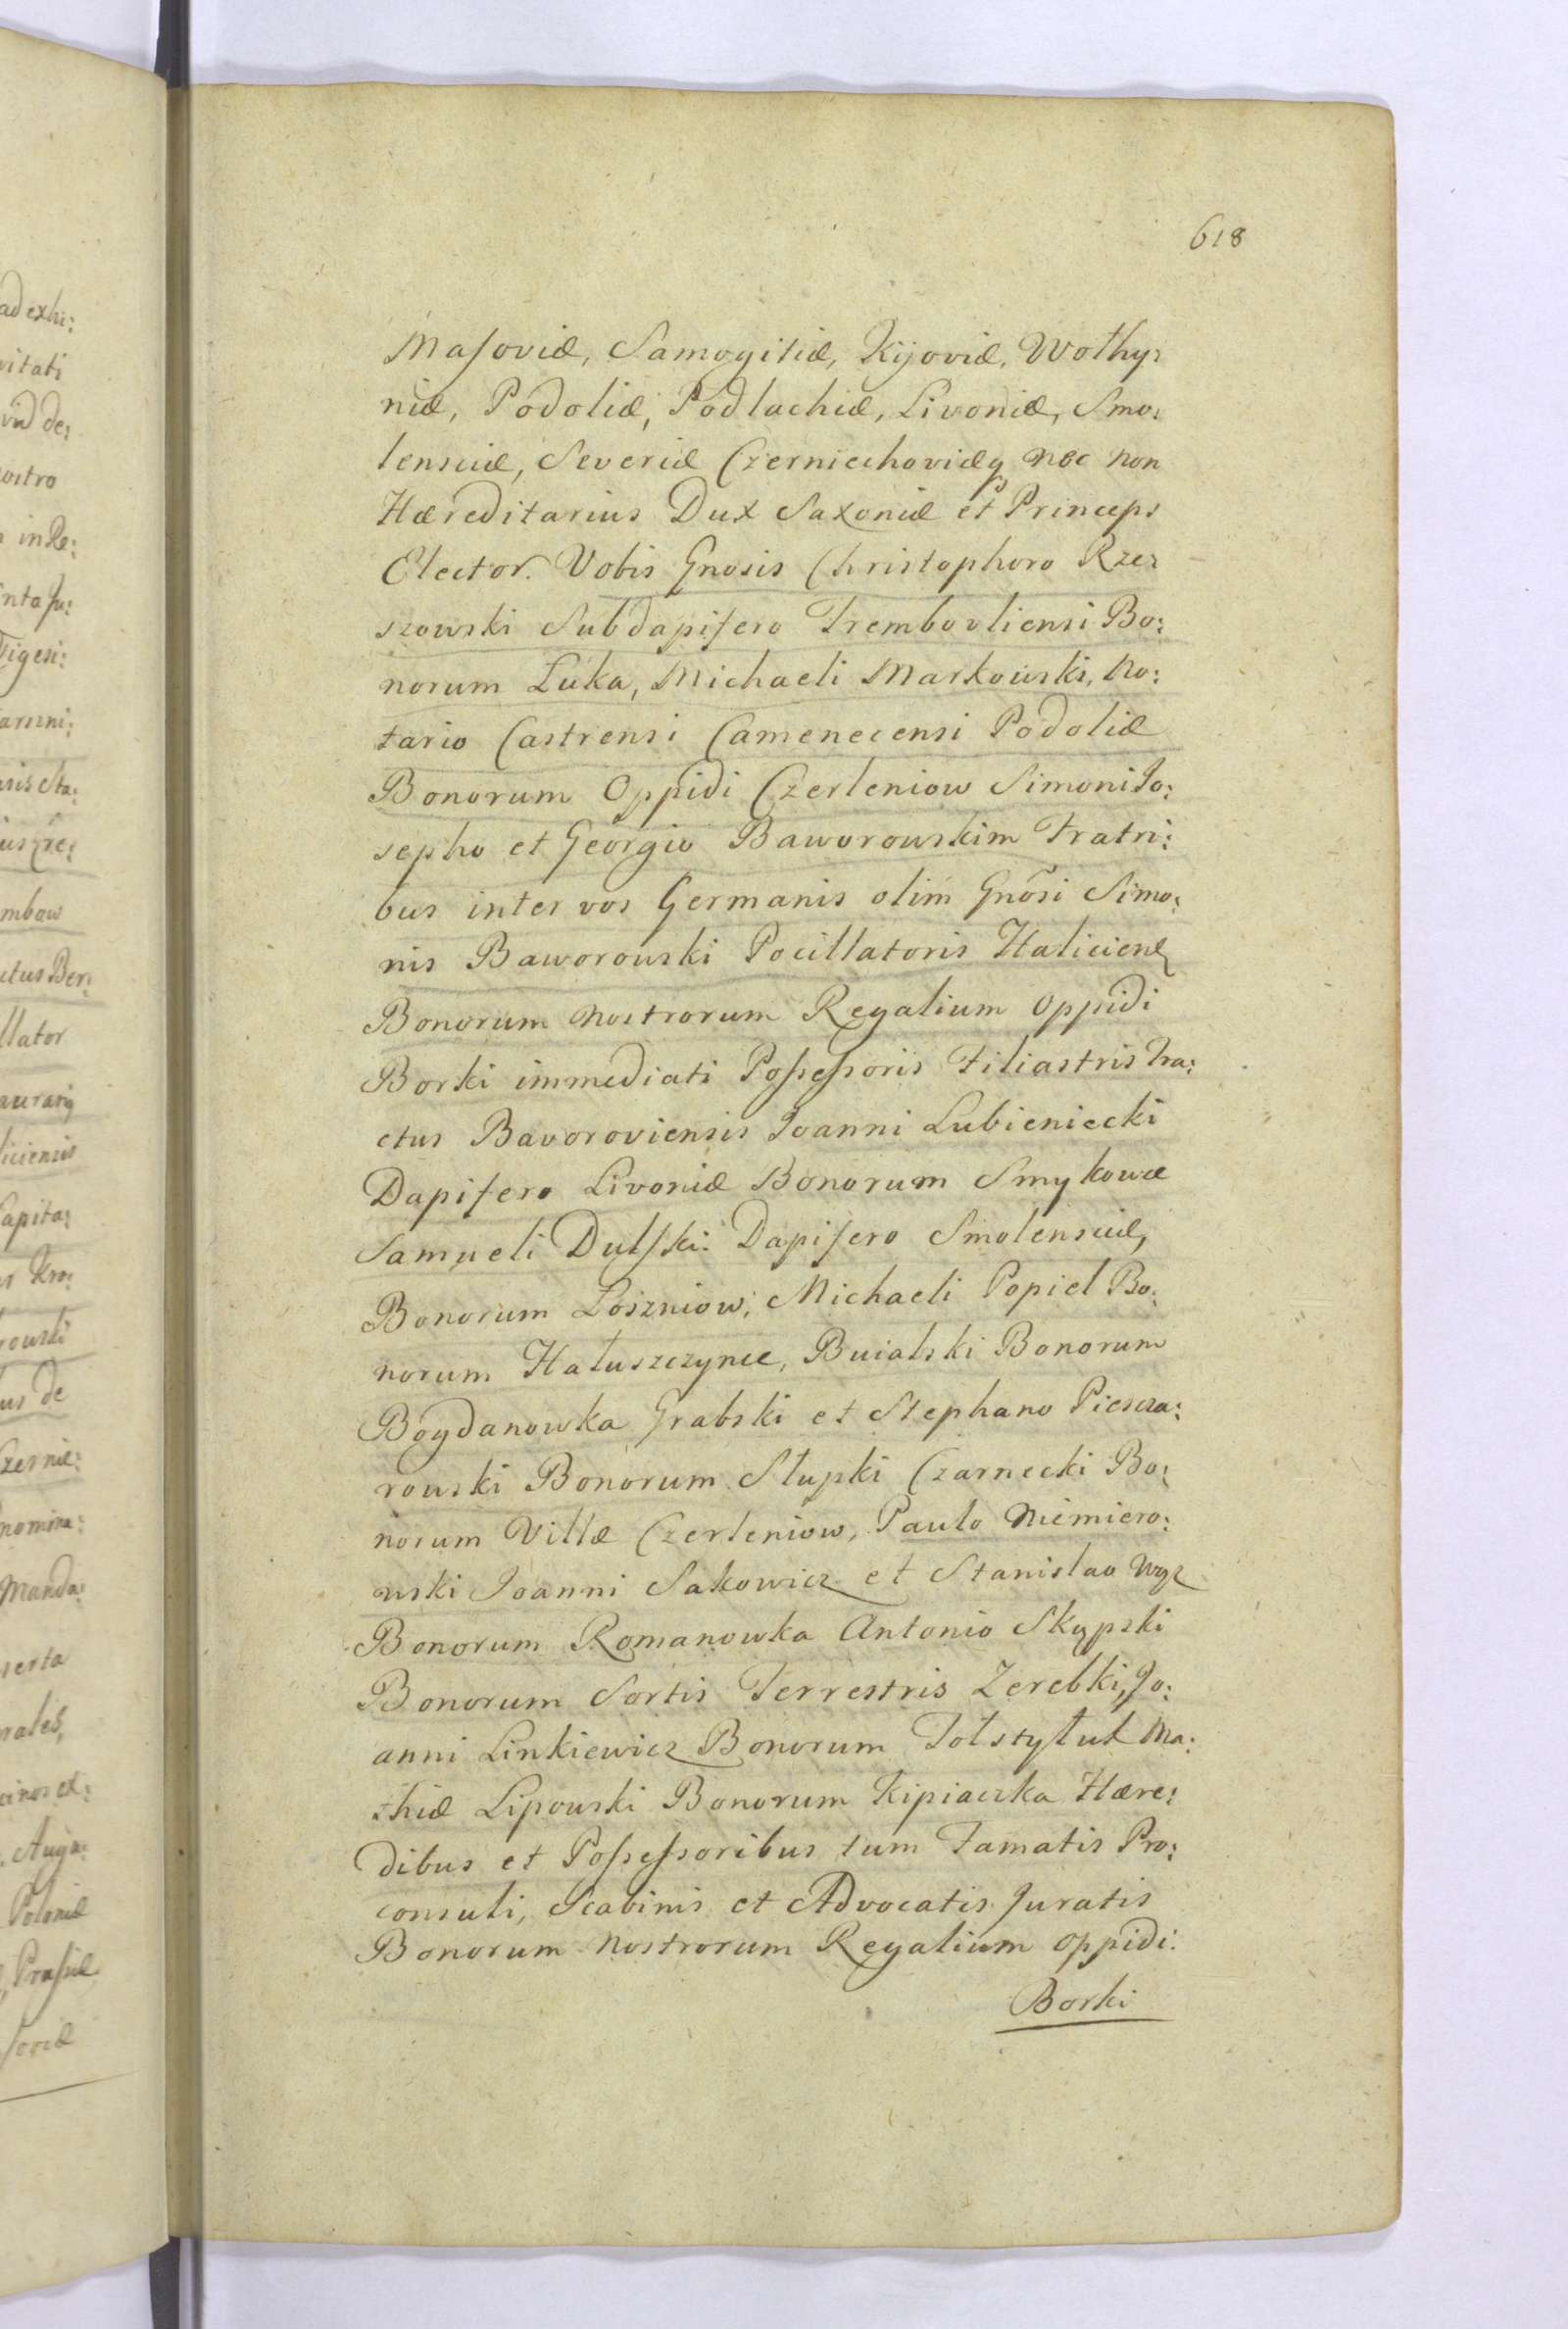 618
Masoviæ, Samogitiæ, Kijoviæ, Wołhy:
niæ, Podoliæ, Podlachiæ, Livoniæ, Smo:
lensciæ, Severiæ Czerniechoviæq nec non
Hæreditarius Dux Saxoniæ et Princeps
Elector. Vobis Gnosis Christophoro Rze:
szowski Subdapifero Trembovliensi Bo:
norum Łuka, Michaeli Markowski, No:
tario Castrensi Camenecensi Podoliæ
Bonorum Oppidi Czerleniow Simoni Jo:
sepho et Georgio Baworowskim Fratri:
bus inter vos Germanis olim Gnosi Simo:
nis Baworowski Pocillatoris Halicien
Bonorum nostrorum Regalium Oppidi
Borki immediati Possessoris Filiastris Tra:
ctus Bavoroviensis Joanni Lubieniecki
Dapifero Livoniæ Bonorum Smykowce
Samueli Dulski Dapifero Smolensciæ,
Bonorum Łoszniow, Michaeli Popiel Bo:
norum Hałuszczynce, Buialski Bonorum
Bogdanowka Grabski et Stephano Piescza:
rowski Bonorum Słupki Czarnecki Bo:
norum Villæ Czerleniow, Paulo Niemiero:
wski Joanni Sakowicz et Stanislao
Bonorum Romanowka Antonio Skypski
Bonorum Sortis Terrestris Zerebki, Jo:
anni Linkiewicz Bonorum Tołstyług Ma:
thiæ Lipowski Bonorum Kipiaczka Hære:
dibus et Possessoribus tum Famatis Pro:
consuli, Scabinis et Advocatis Juratis
Bonorum nostrorum Regalium oppidi.
Borki
ad exhi:
vitati
de:
ostro
in Re:
Sta:
mbow
ctus Ber:
llator
liciensis
Capita:
Kro:
rowski
us de
Czernie:
nomina:
Manda:
serta
rales,
Poloniæ